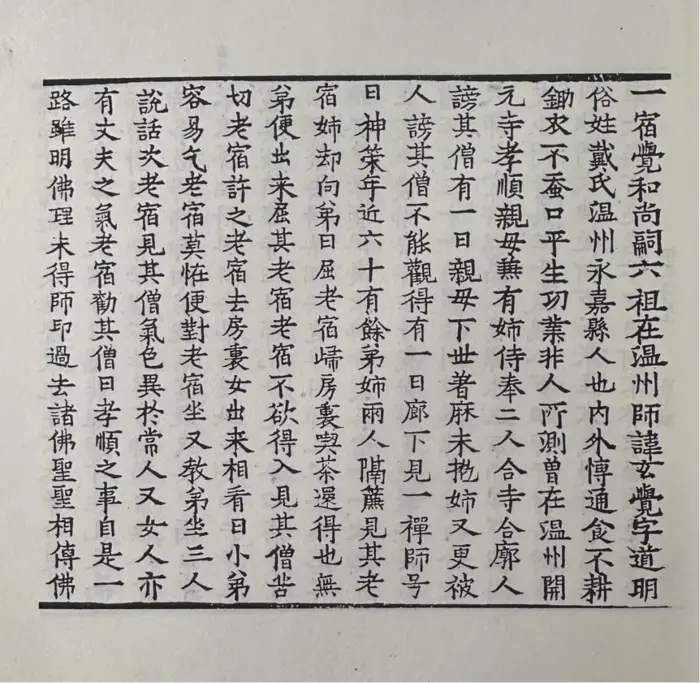 一宿覺和尚嗣六祖在温州師諱玄覺字道明
俗姓戴氏温州永嘉縣人也内外愽通食不耕
鋤衣不蚕口平生功業非人所測曾在温州開
元寺孝順親母兼有姉侍奉二人合寺合廓人
謗其僧有一日親母下世著麻未抛姉又更被
人謗其僧不能觀得有一日廊下見一禪師号
曰神策年近六十有餘弟姉兩人隔簾見其老
宿姉却向弟曰屈老宿歸房裏喫茶還得也無
弟便出来屈其老宿老宿不欲得入見其僧苦
切老宿許之老宿去房裏女出来相看曰小弟
容易乞老宿莫恠便對老宿坐又教弟坐三人
說話次老宿見其僧氣色異於常人又女人亦
有丈夫之氣老宿勸其僧曰孝順之事自是一
路雖明佛理未得師印過去諸佛聖聖相傳佛